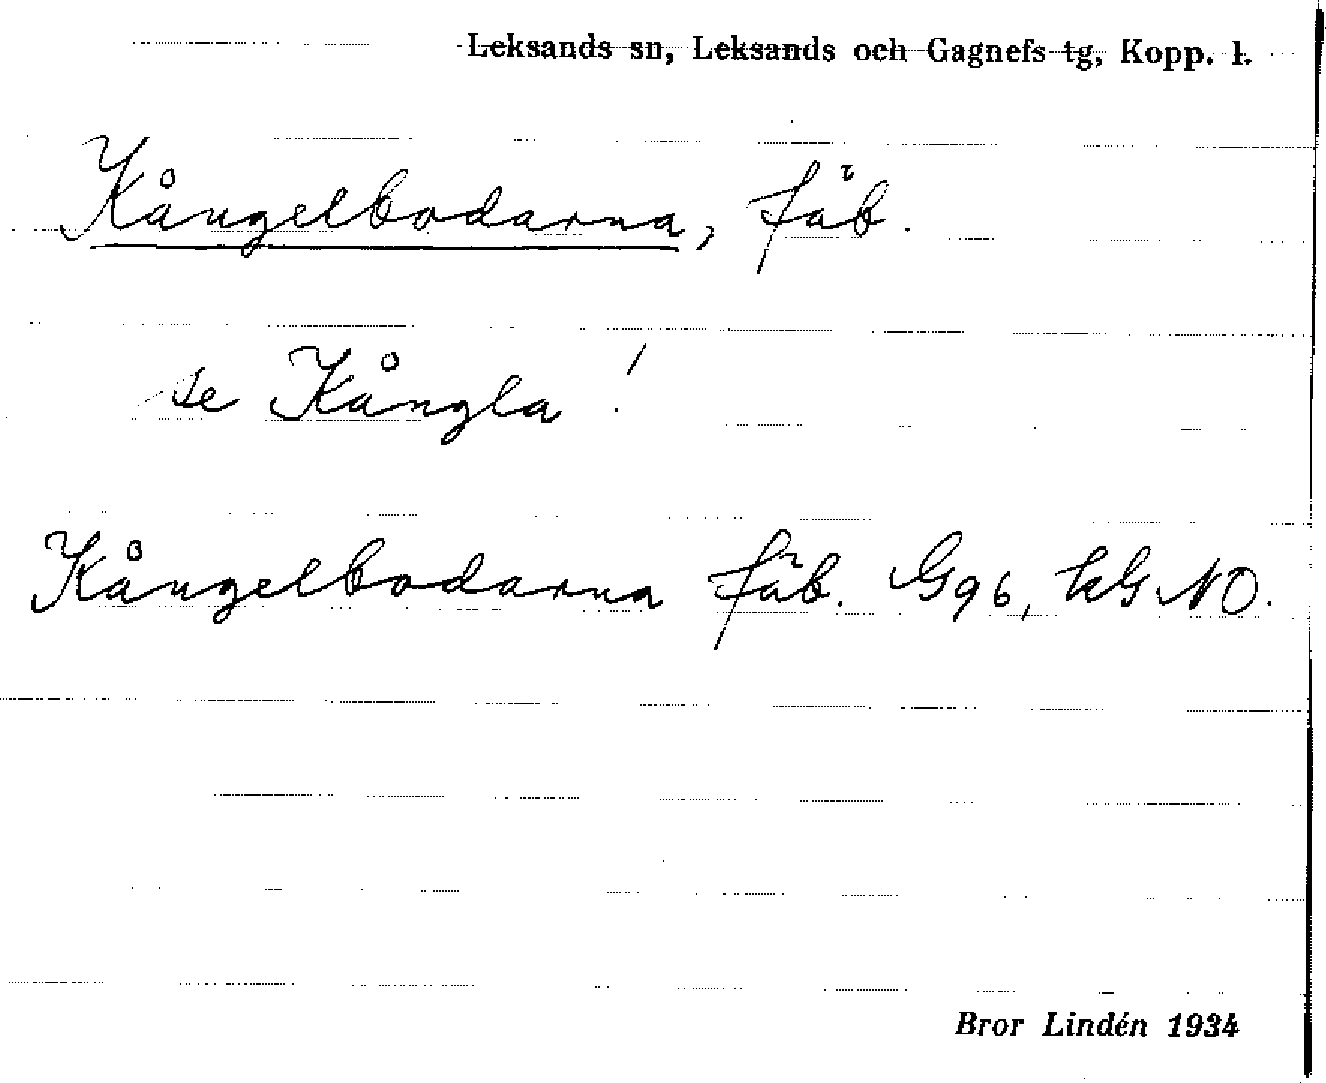 Leksands sn, Leksands och Gagnefs tg, Kopp. l.
Kångelbodarna, fäb.
se Kångla!
Kångelbodarna fäb. G96, kG NO.
Bror Lindén 1934